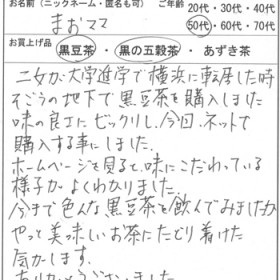 お名前(ニックネーム・匿名も可) ご年齢
まおママ
20代・30代・40代
50代・60代・70代
お買上げ品
黒豆茶・黒の五穀茶・あずき茶
二女が大学進学で横浜に転居した時
そごうの地下で黒豆茶を購入しました
味の良さにビックリし、今回、ネットで
購入する事にしました。
ホームページを見ると、味にこだわっている
様子がよくわかりました。
今まで色んな黒豆茶を飲んでみましたが
やっと美味しいお茶にたどり着けた
気がします。
ありがとうございました